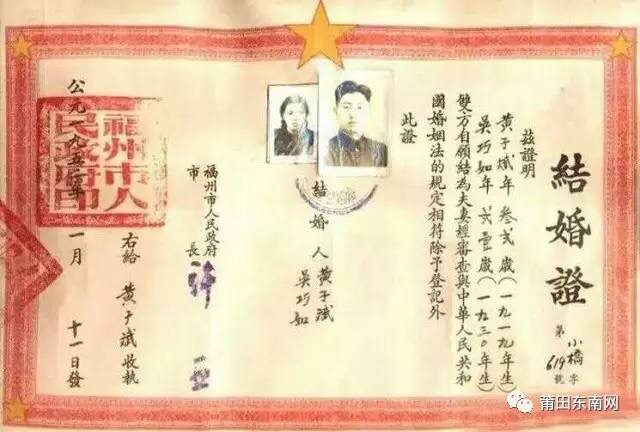 結婚證
第小橋字
619號
茲證明
黃于斌年叁弍歲(一九一九年生)
吳巧如年弍壹歲(一九三〇年生)
雙方自願結為夫妻經審查與中華人民共和
國婚姻法的規定相符除予登記外
此證
結婚人黃于斌
吳巧如
福州市人民政府
市長許
右給黃于斌收執
公元一九五一年一月十一日發
福州市人民政府印
莆田东南网